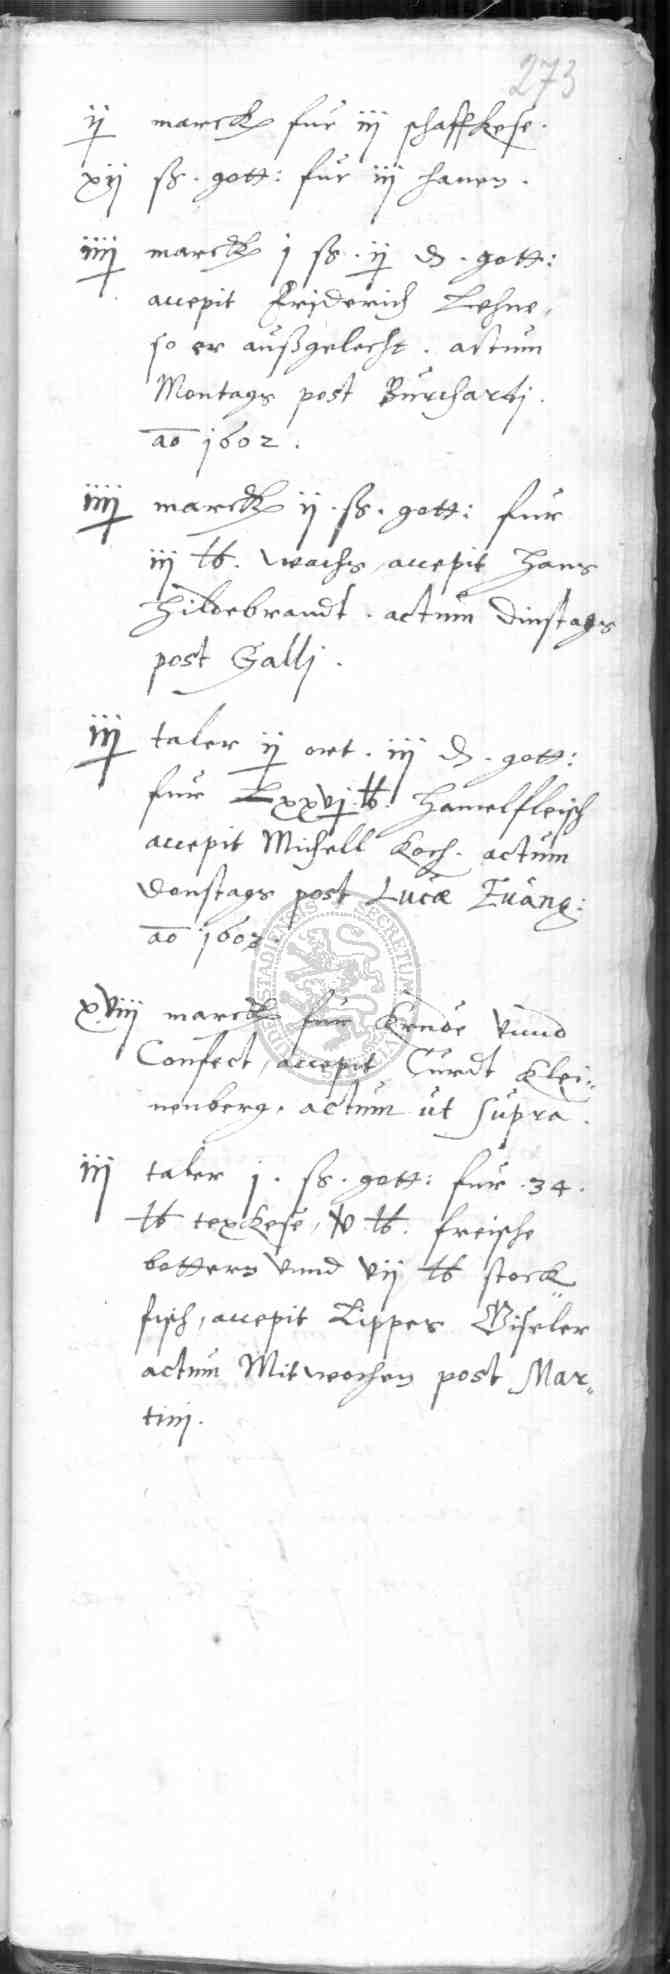 273
ij marck fur iij schaffkese.
xij ß. gott: fur iij hanen.
iiij marck j ß. ij d. gott:
accepit Friderich Lehne,
so er außgelecht. actum
Montags post Burcharti.
ao 1602.
iiij marck ij. ß. gott: fur
iij lb. wachs, accepit Hans
Hildebrandt. actum dinstags
post Galli.
iij taler ij ort. iij d. gott:
fur Lxxvj. lb. hamelfleisch
accepit Michell Koch. actum
donstags post Lucæ Euang:
ao 1602.
xviij marck fur Krude vnnd
Confect, accepit Curdt Klei=
nenberg. actum ut supra.
iij taler j. ß. gott: fur. 34.
lb texkese, v lb. freische
bottern vnnd vij lb stock=
fisch, accepit Lippes Giseler
actum Mitwochen post Mar=
tini.
SECRETUM